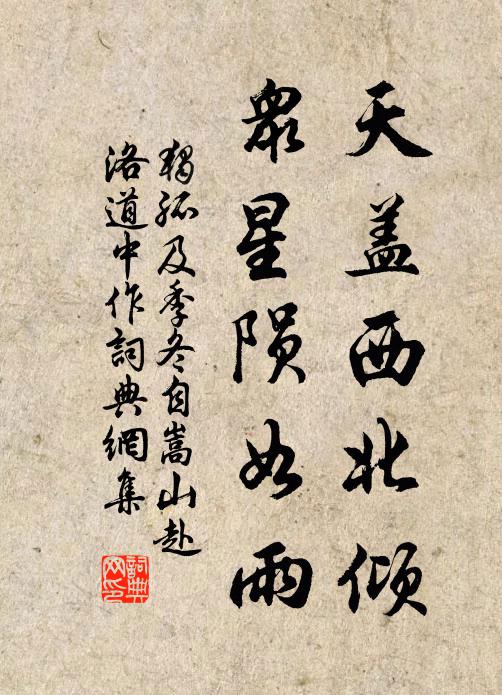 天盖西北倾
众星陨如雨
独孤及季冬自嵩山赴
洛道中作词典网集
詞典网印